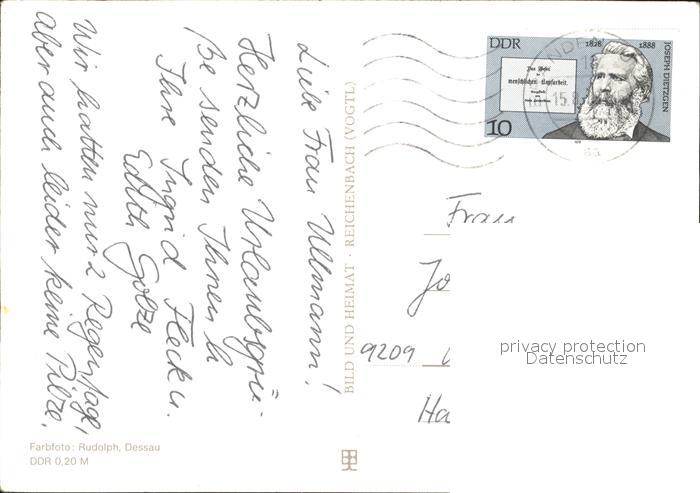 Liebe Frau Ullmann!
Herzliche Urlaubsgrü-
ße senden Ihnen
Ihre Ingrid Fleck u.
Edith Golze
Wir hatten nur 2 Regentage,
aber auch leider keine Pilze.
BILD UND HEIMAT · REICHENBACH (VOGTL)
DDR 1828 1888
JOSEPH DIETZGEN
Das Wesen
der
menschlichen Kopfarbeit.
10
15.8
Frau
Jo
9209
Ha
privacy protection
Datenschutz
Farbfoto: Rudolph, Dessau
DDR 0,20 M